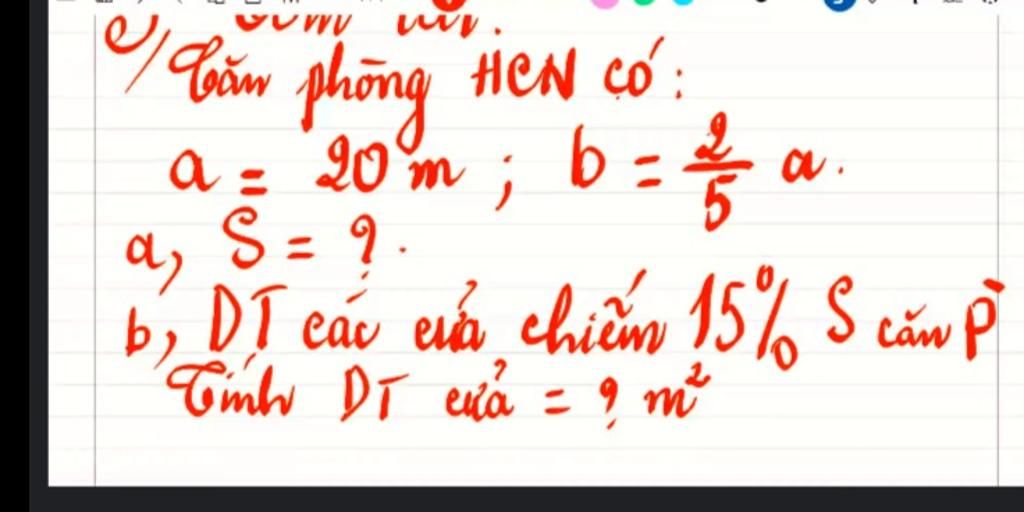 c) Tóm tắt.
Căn phòng HCN có:
a = 20 m ; b = 2/5 a.
a, S = ? .
b, DT các cửa chiếm 15% S căn P
Tính DT cửa = ? m²